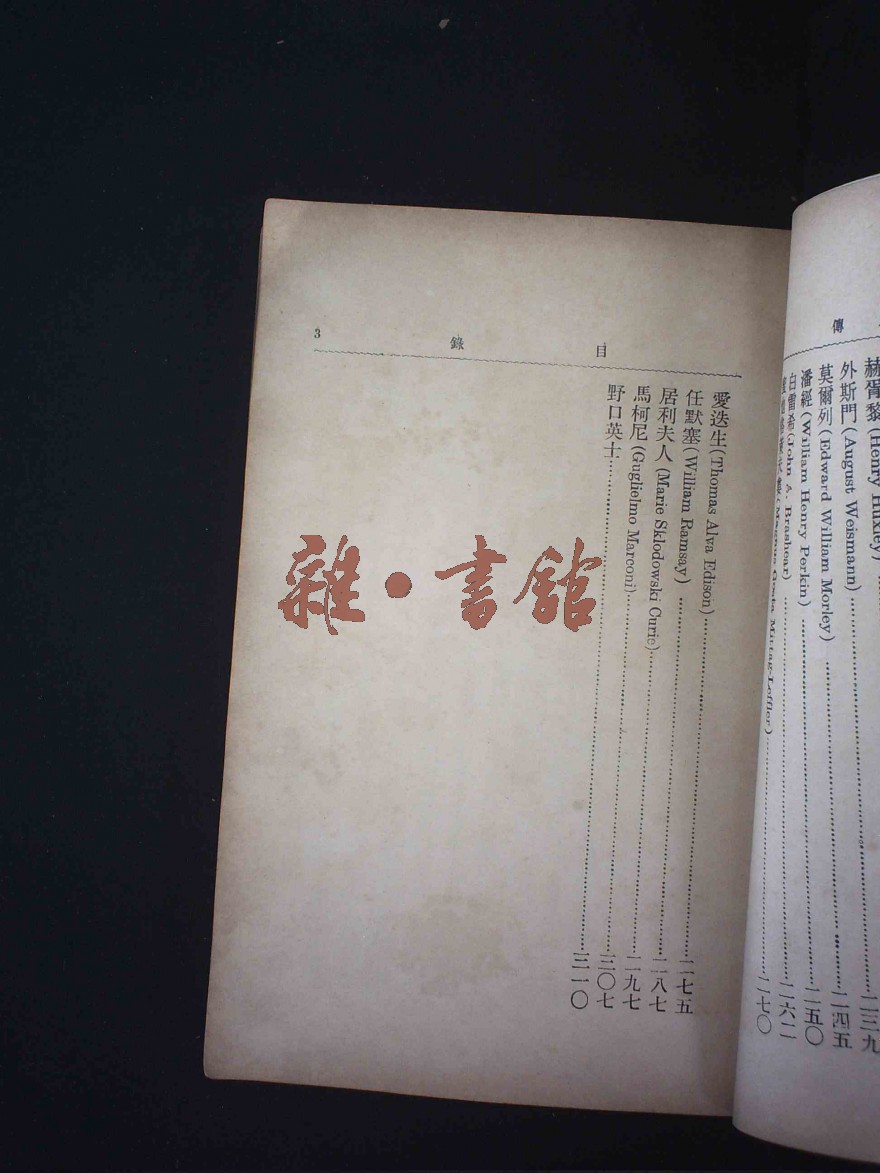 傳
赫胥黎(Henry Huxley)
二三九
外斯門(August Weismann)……二四五
莫爾列(Edward William Morley)……二五〇
潘經(William Henry Perkin)……二六二
白雷希(John A. Brashear)……二七〇
(Magnus Gosta Mittag-Leffler)……
目錄
3
愛迭生(Thomas Alva Edison)……二七五
任默塞(William Ramsay)……二八七
居利夫人(Marie Sklodowski Curie)……二九七
馬柯尼(Guglielmo Marconi)……三〇七
野口英士……三一〇
雜·書館